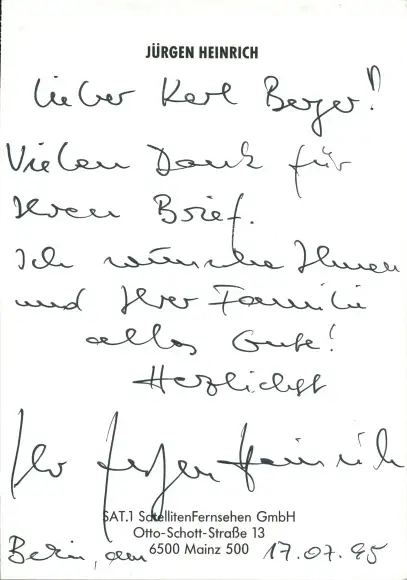 JÜRGEN HEINRICH
Lieber Karl Berger!
Vielen Dank für
Ihren Brief.
Ich wünsche Ihnen
und Ihrer Familie
alles Gute!
Herzlichst
Ihr Jürgen Heinrich
SAT.1 SatellitenFernsehen GmbH
Otto-Schott-Straße 13
6500 Mainz 500
Berlin, den 17.07.95